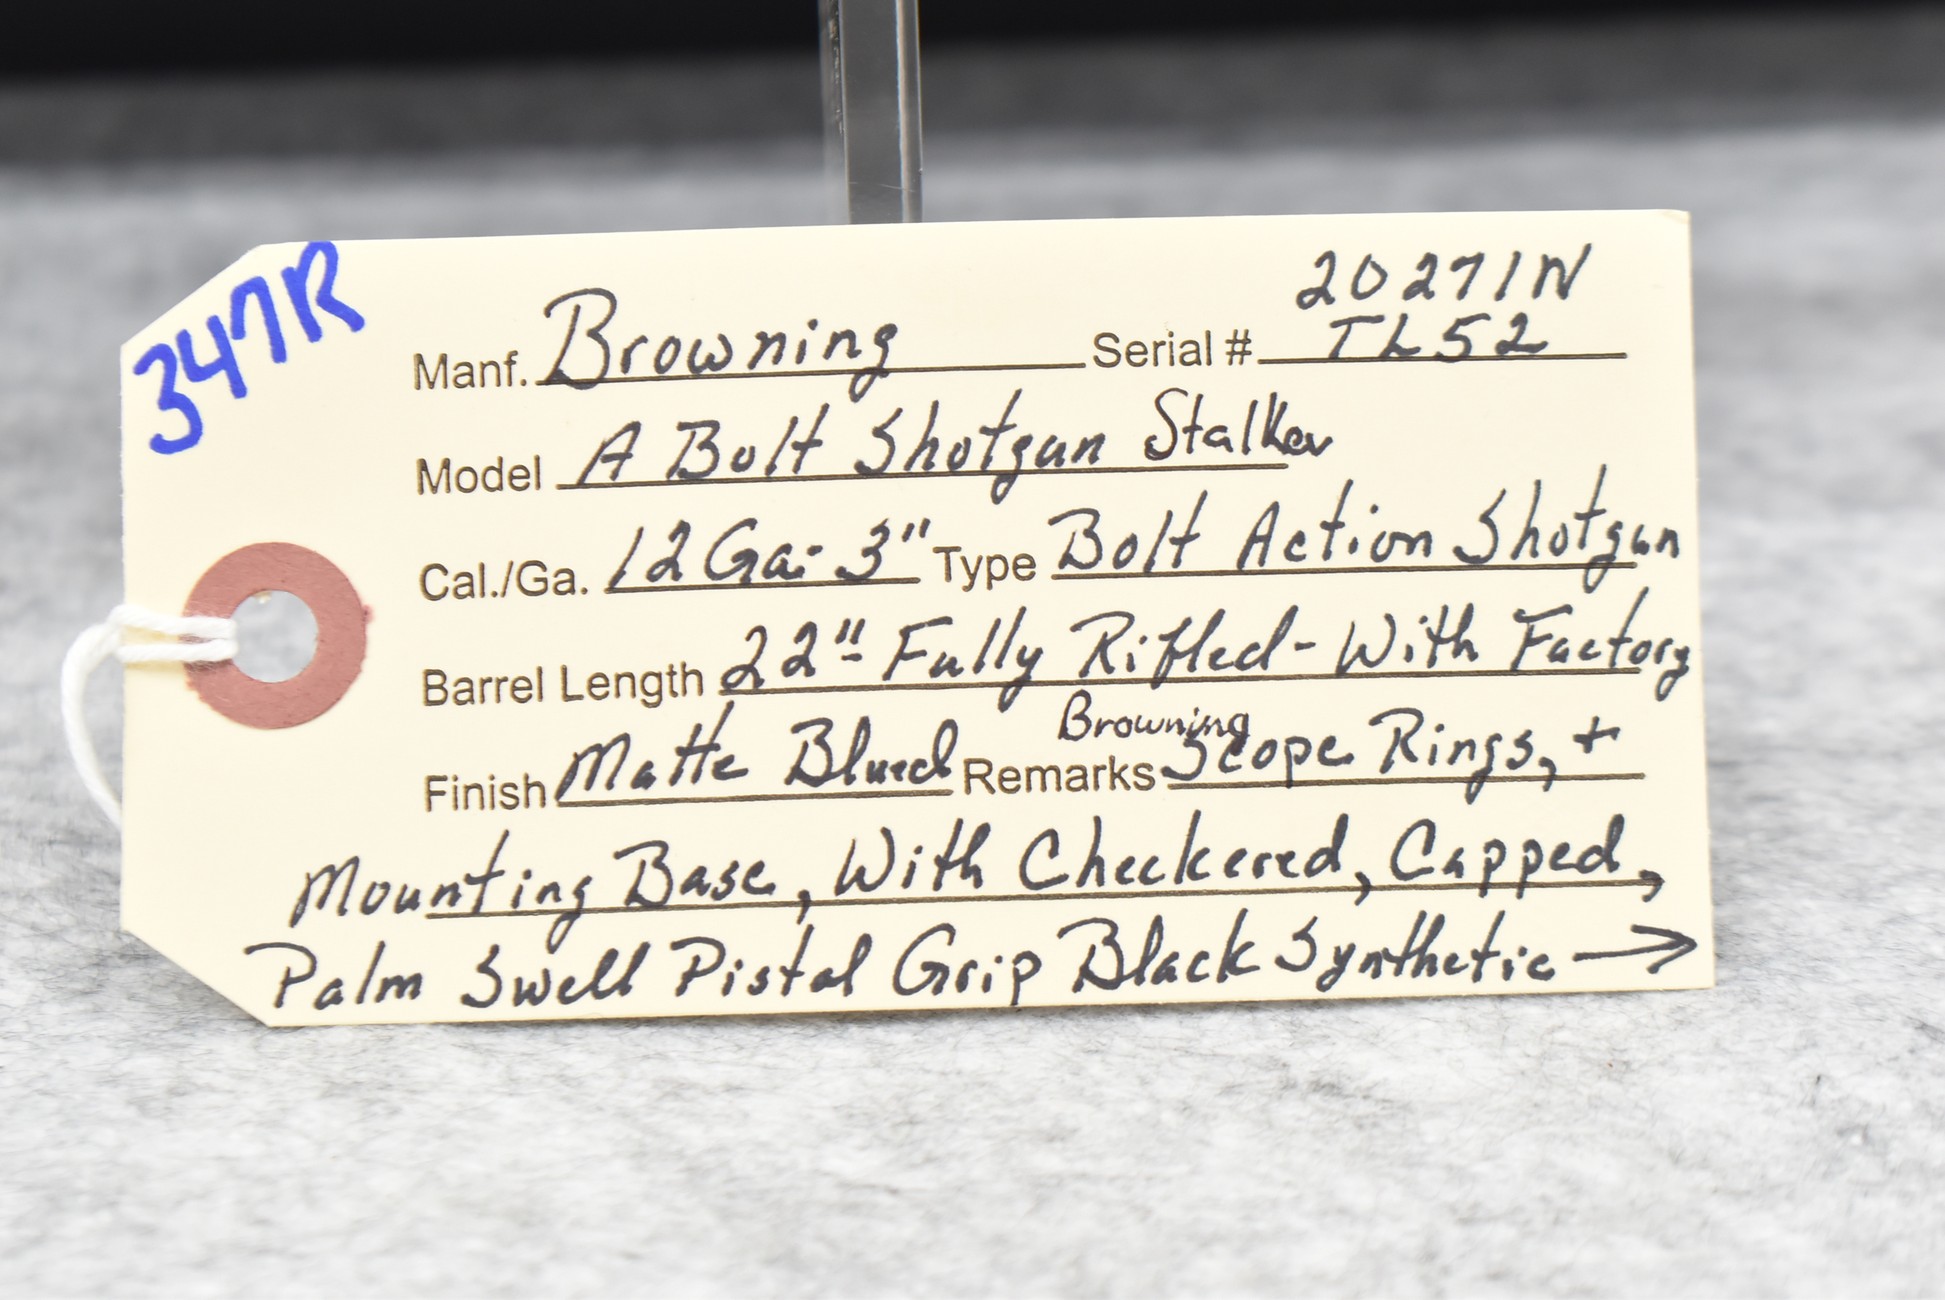 347R
20271N
Manf. Browning Serial # TL52
Model A Bolt Shotgun Stalker
Cal./Ga. 12 Ga. 3" Type Bolt Action Shotgun
Barrel Length 22" - Fully Rifled - With Factory
Browning
Finish Matte Blued Remarks Scope Rings, +
Mounting Base, With Checkered, Capped,
Palm Swell Pistol Grip Black Synthetic →